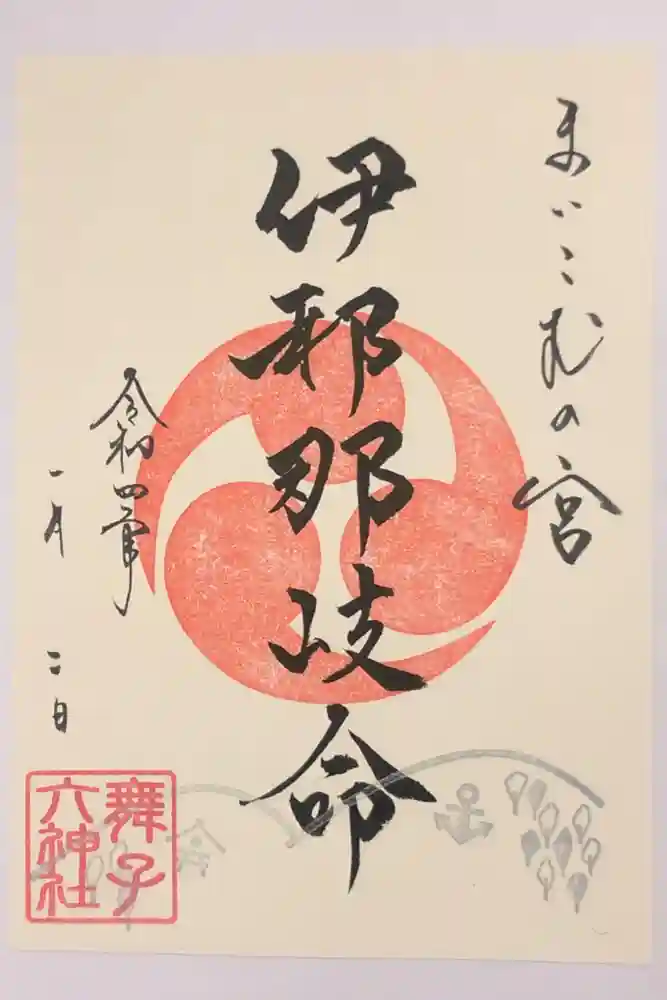 まいこむの宮
伊邪那岐命
令和四年
一月二日
舞子
六神社